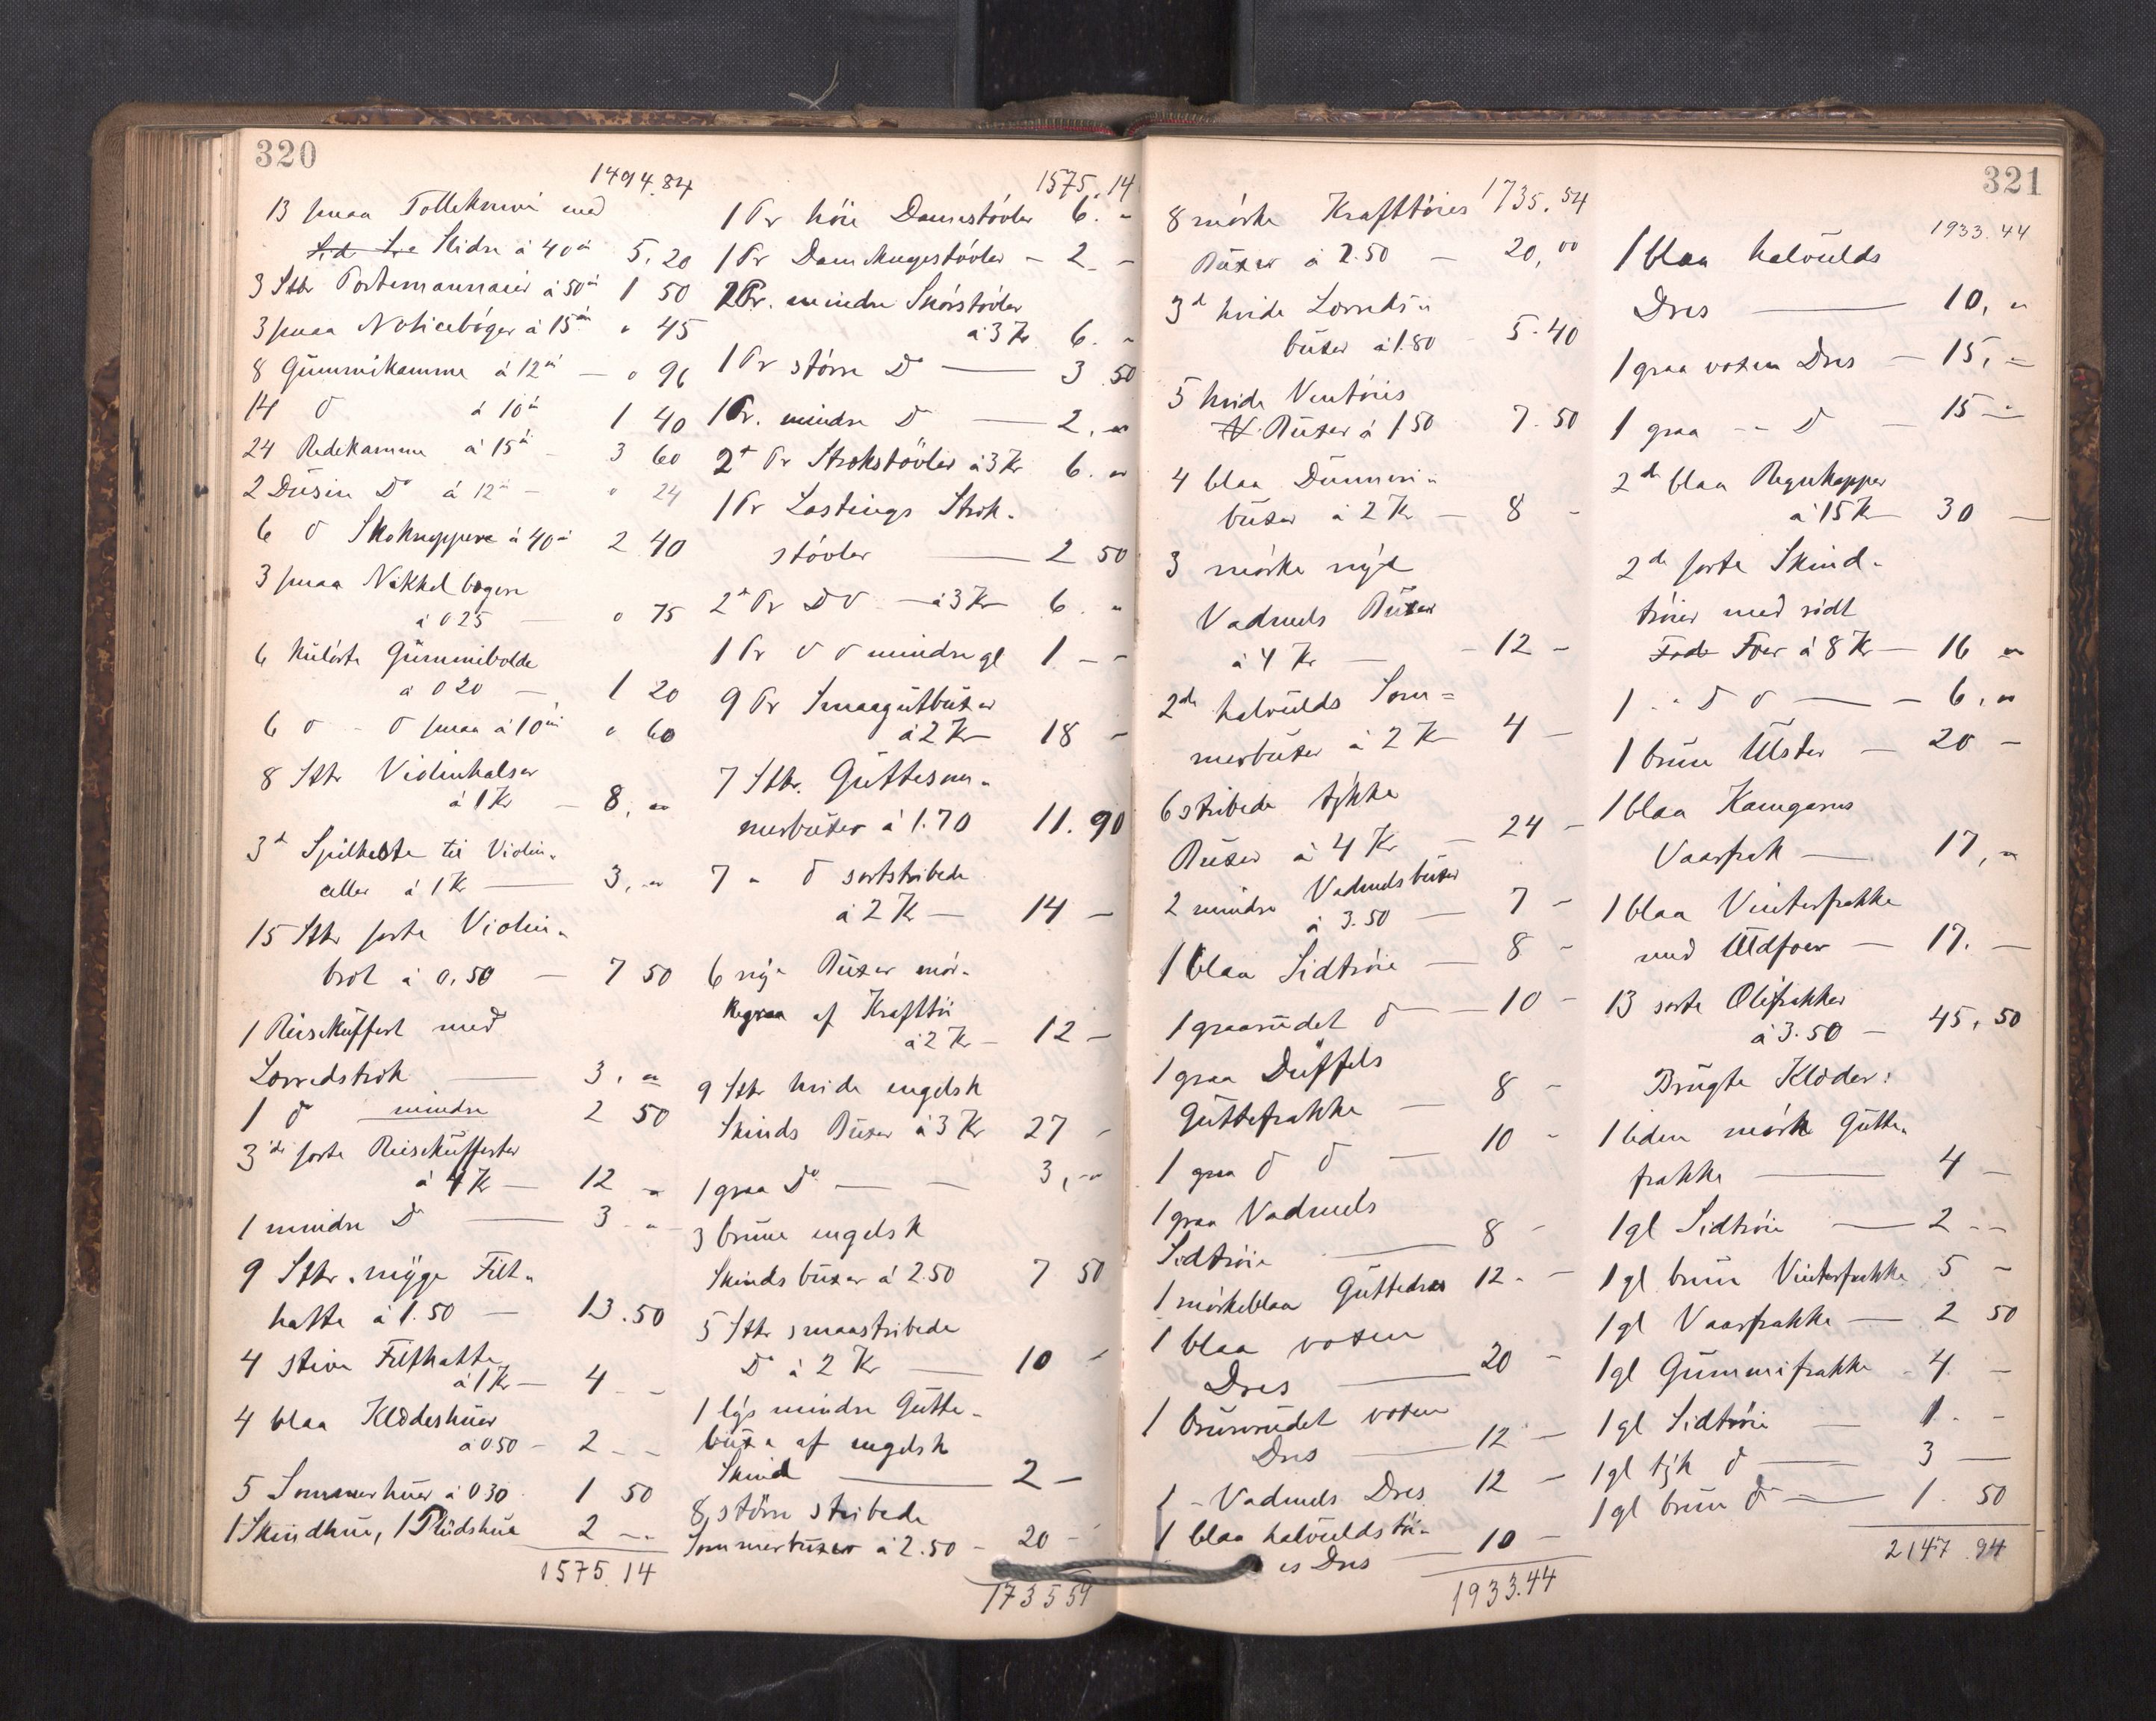 320
1494.84
13 smaa Tolleknive med
Slidre à 40ø 5.20
3 Stkr Portemonnaier à 50ø 1 50
3 smaa Noticebøger à 15ø " 45
8 Gummikamme à 12ø — " 96
14 do à 10ø 1 40
24 Redekamme à 15ø - 3 60
2 Dusin Do à 12ø - " 24
6 do Skoknappere à 40ø 2 40
3 smaa Nikkel bægere
à 0 25 — " 75
6 kulørte Gummibolde
à 0 20 — 1 20
6 do - do smaa à 10ø " 60
8 Stkr Violinhalser
à 1 Kr — 8, "
3 Spilkaste til Violin-
celler à 1 Kr — 3, "
15 Stkr sorte Violin-
bret à 0,50 — 7 50
1 Reisekuffert med
Lærredstræk — 3, "
1 do mindre 2 50
3de sorte Reisekufferter
à 4 Kr — 12 "
1 mindre Do — 3 - "
9 Stkr. nyge Filt-
hatte à 1.50 — 13.50
4 stive Filthatte
à 1 Kr — 4 - -
4 blaa Klædeshuer
à 0.50 - 2 - -
5 Sommerhuer à 0 30 1 50
1 Skindhue, 1 Plüdshue 2 - -
1575.14
1575.14
1 Pr høie Damestøvler 6. "
1 Pr Dameskugestøvler - 2. -
2 Pr. mindre Snørstøvler
à 3 Kr 6. "
1 Pr større Do — 3.50
1 Pr. mindre Do — 2. "
2 Pr Strokstøvler à 3 Kr 6. "
1 Pr Lastings Strok-
støvler — 2 50
2 Pr Do do — à 3 Kr 6. "
1 Pr do do mindre gl 1 - -
9 Pr Smaagutbuxer
à 2 Kr 18 -
7 Stkr. Guttesom-
merbuxer à 1.70 11.90
7 " do sortstribede
à 2 Kr — 14 -
6 nye Buxer mør-
kegraa af Krafttøi
à 2 Kr — 12 -
9 Stkr hvide engelsk
Skinds Buxer à 3 Kr 27 -
1 graa Do — — 3, "
3 brune engelsk
Skindsbuxer à 2.50 7 50
5 Stkr smaastribede
Do à 2 Kr — 10 -
1 lys mindre Gutte-
buxe af engelsk
Skind — 2 -
8 større stribede
Sommerbuxer à 2.50 - 20 -
1735 54
1735.54
8 mørke Krafttøies
Buxer à 2.50 — 20,00
3d hvide Lærreds-
buxer à 1.80 5.40
5 hvide Ventøies
Buxer à 1 50 7.50
4 blaa Dunueri-
buxer à 2 Kr — 8 -
3 mørke nye
Vadmels Buxer
à 4 Kr — - 12 -
2de halvulds Som=
merbuxer à 2 Kr 4 -
6 stribede tykke
Buxer à 4 Kr — 24 -
2 mindre Vadmelsbuxer
à 3.50 — 7 -
1 blaa Sidtrøie — 8 -
1 graarudet do — 10 -
1 graa Duffels
Guttefrakke — 8 -
1 graa do do — 10 -
1 graa Vadmels
Sidtrøie — 8 -
1 mørkeblaa Guttedres 12. -
1 blaa voxen
Dres — 20 -
1 brunrudet voxen
Dres — 12 -
1 - Vadmels Dres 12 -
1 blaa halvuldstø-
es Dres — 10 -
1933.44
321
1933.44
1 blaa halvulds
Dres — 10, "
1 graa voxen Dres — 15, -
1 graa -- do — 15 -
2de blaa Regnkapper
à 15 Kr 30 —
2de sorte Skind-
trøier med rødt
Foer à 8 Kr — 16 "
1 - " do do — - 6, "
1 brun Ulster — 20 -
1 blaa Kamgarns
Vaarfrak — 17, "
1 blaa Vinterfrakke
med Uldfoer — 17. —
13 sorte Oliefrakker
à 3.50 — 45, 50
Brugte Klæder:
1 liden mørk Gutte-
frakke — 4 -
1 gl Sidtrøie — 2 - -
1 gl brun Vinterfrakke 5 -
1 gl Vaarfrakke — 2 50
1 gl Gummifrakke - 4. -
1 gl Sidtrøie — 1 - -
1 gl tyk do — 3 —
1 gl brun do — 1. 50
2147.94